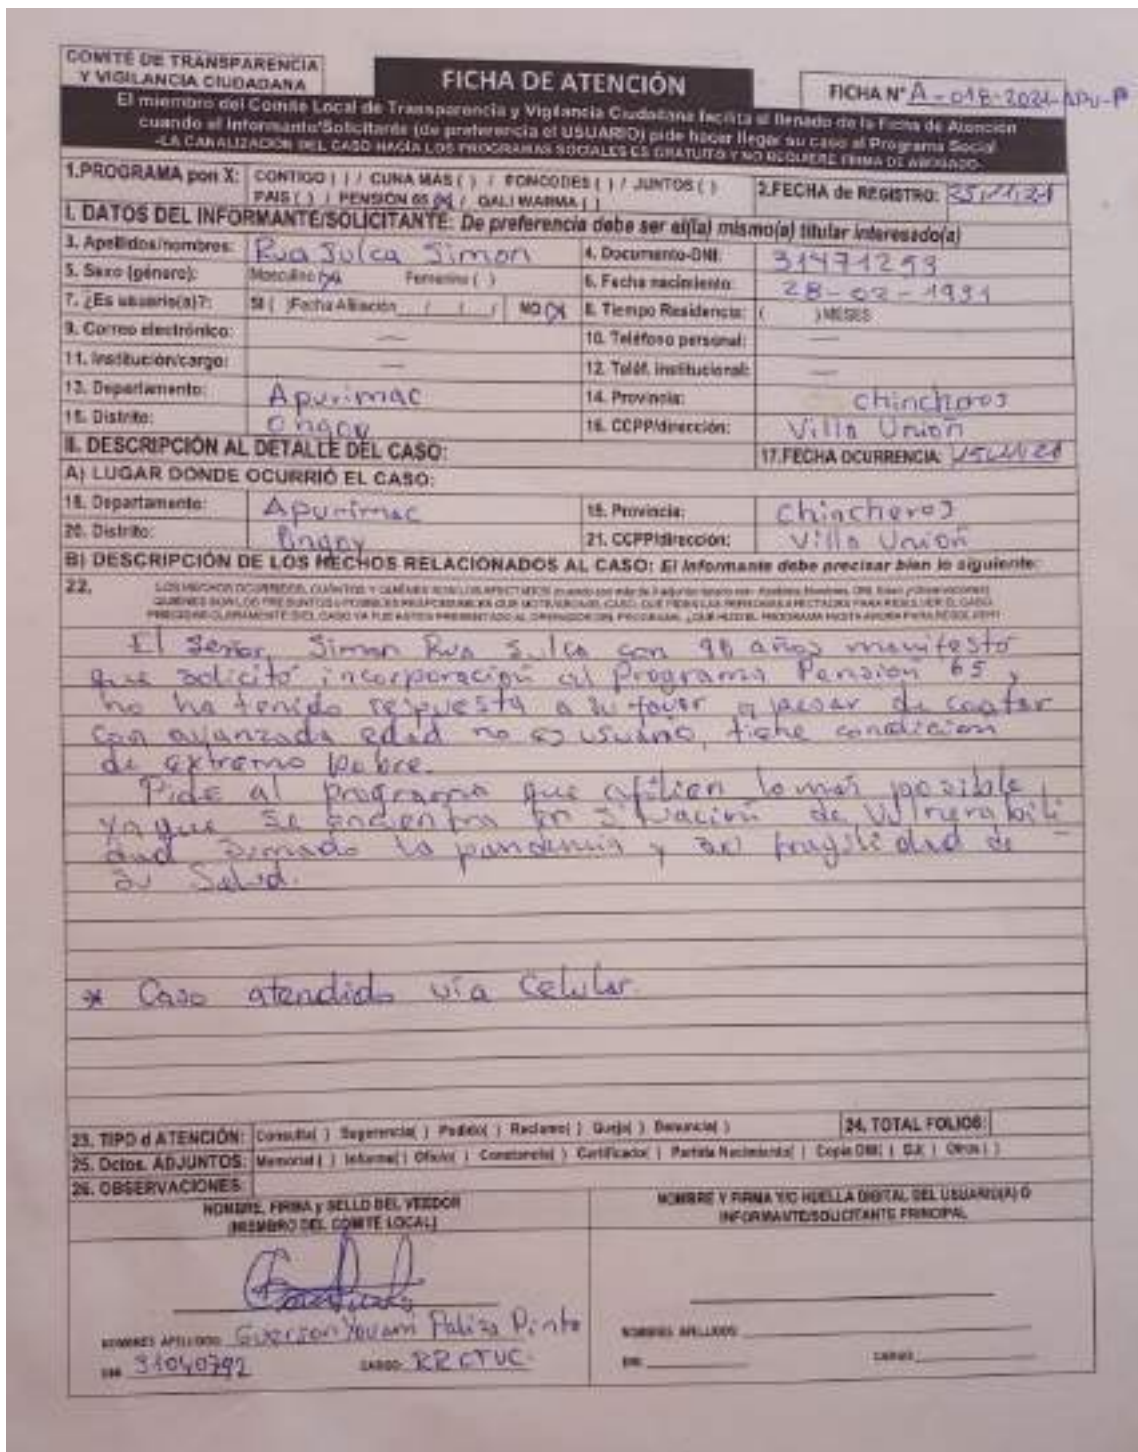 COMITÉ DE TRANSPARENCIA
Y VIGILANCIA CIUDADANA
FICHA DE ATENCIÓN
FICHA N° A-018-2021-APU-P
El miembro del Comité Local de Transparencia y Vigilancia Ciudadana facilita el llenado de la Ficha de Atención
cuando el Informante/Solicitante (de preferencia el USUARIO) pide hacer llegar su caso al Programa Social
-LA CANALIZACIÓN DEL CASO HACIA LOS PROGRAMAS SOCIALES ES GRATUITO Y NO REQUIERE FIRMA DE ABOGADO-
1.PROGRAMA pon X: CONTIGO ( ) / CUNA MAS ( ) / FONCODES ( ) / JUNTOS ( )
PAIS ( ) / PENSION 65 (X) / QALI WARMA ( )
2.FECHA de REGISTRO: 25/11/21
I. DATOS DEL INFORMANTE/SOLICITANTE: De preferencia debe ser el(la) mismo(a) titular interesado(a)
3. Apellidos/nombres: Rua Sulca Simon 4. Documento-DNI: 31471293
5. Sexo (género): Masculino (X) Femenino ( ) 6. Fecha nacimiento: 28-02-1931
7. ¿Es usuario(a)?: SI ( )Fecha Afiliación / / NO (X) 8. Tiempo Residencia: ( )MESES
9. Correo electrónico: — 10. Teléfoso personal: —
11. Institución/cargo: — 12. Teléf. institucional: —
13. Departamento: Apurimac 14. Provincia: Chincheros
15. Distrito: Ongoy 16. CCPP/dirección: Villa Unioñ
II. DESCRIPCIÓN AL DETALLE DEL CASO: 17.FECHA OCURRENCIA:
A) LUGAR DONDE OCURRIÓ EL CASO:
18. Departamento: Apurimac 19. Provincia: Chincheros
20. Distrito: Ongoy 21. CCPP/dirección: Villa Unioñ
B) DESCRIPCIÓN DE LOS HECHOS RELACIONADOS AL CASO: El informante debe precisar bien lo siguiente:
22.
El Señor, Simon Rua Sulca con 90 años manifesto
que solicitó incorporación al Programa Pensión 65,
no ha tenido respuesta a su favor a pesar de contar
con avanzada edad no es usuario, tiene condicion
de extremo pobre.
Pide al programa que afilien lo mas posible,
ya que se encuentra en situación de Vulnerabili
dad sumado la pandemia y fragilidad de
su Salud.
* Caso atendido vía Celular.
23. TIPO d ATENCIÓN: Consulta( ) Sugerencia( ) Pedido( ) Reclamo( ) Queja( ) Denuncia( ) 24. TOTAL FOLIOS:
25. Dctos. ADJUNTOS: Memorial ( ) Informe( ) Oficio( ) Constancia( ) Certificado( ) Partida Nacimiento( ) Copia DNI( ) DJ( ) Otros ( )
26. OBSERVACIONES:
NOMBRE, FIRMA y SELLO DEL VEEDOR
(MIEMBRO DEL COMITÉ LOCAL)
NOMBRE Y FIRMA Y/O HUELLA DIGITAL DEL USUARIO(A) O
INFORMANTE/SOLICITANTE PRINCIPAL
NOMBRES APELLIDOS: Guerson Yovani Paliza Pinto
DNI 31040792 CARGO: RR CTVC
NOMBRES APELLIDOS
DNI CARGO